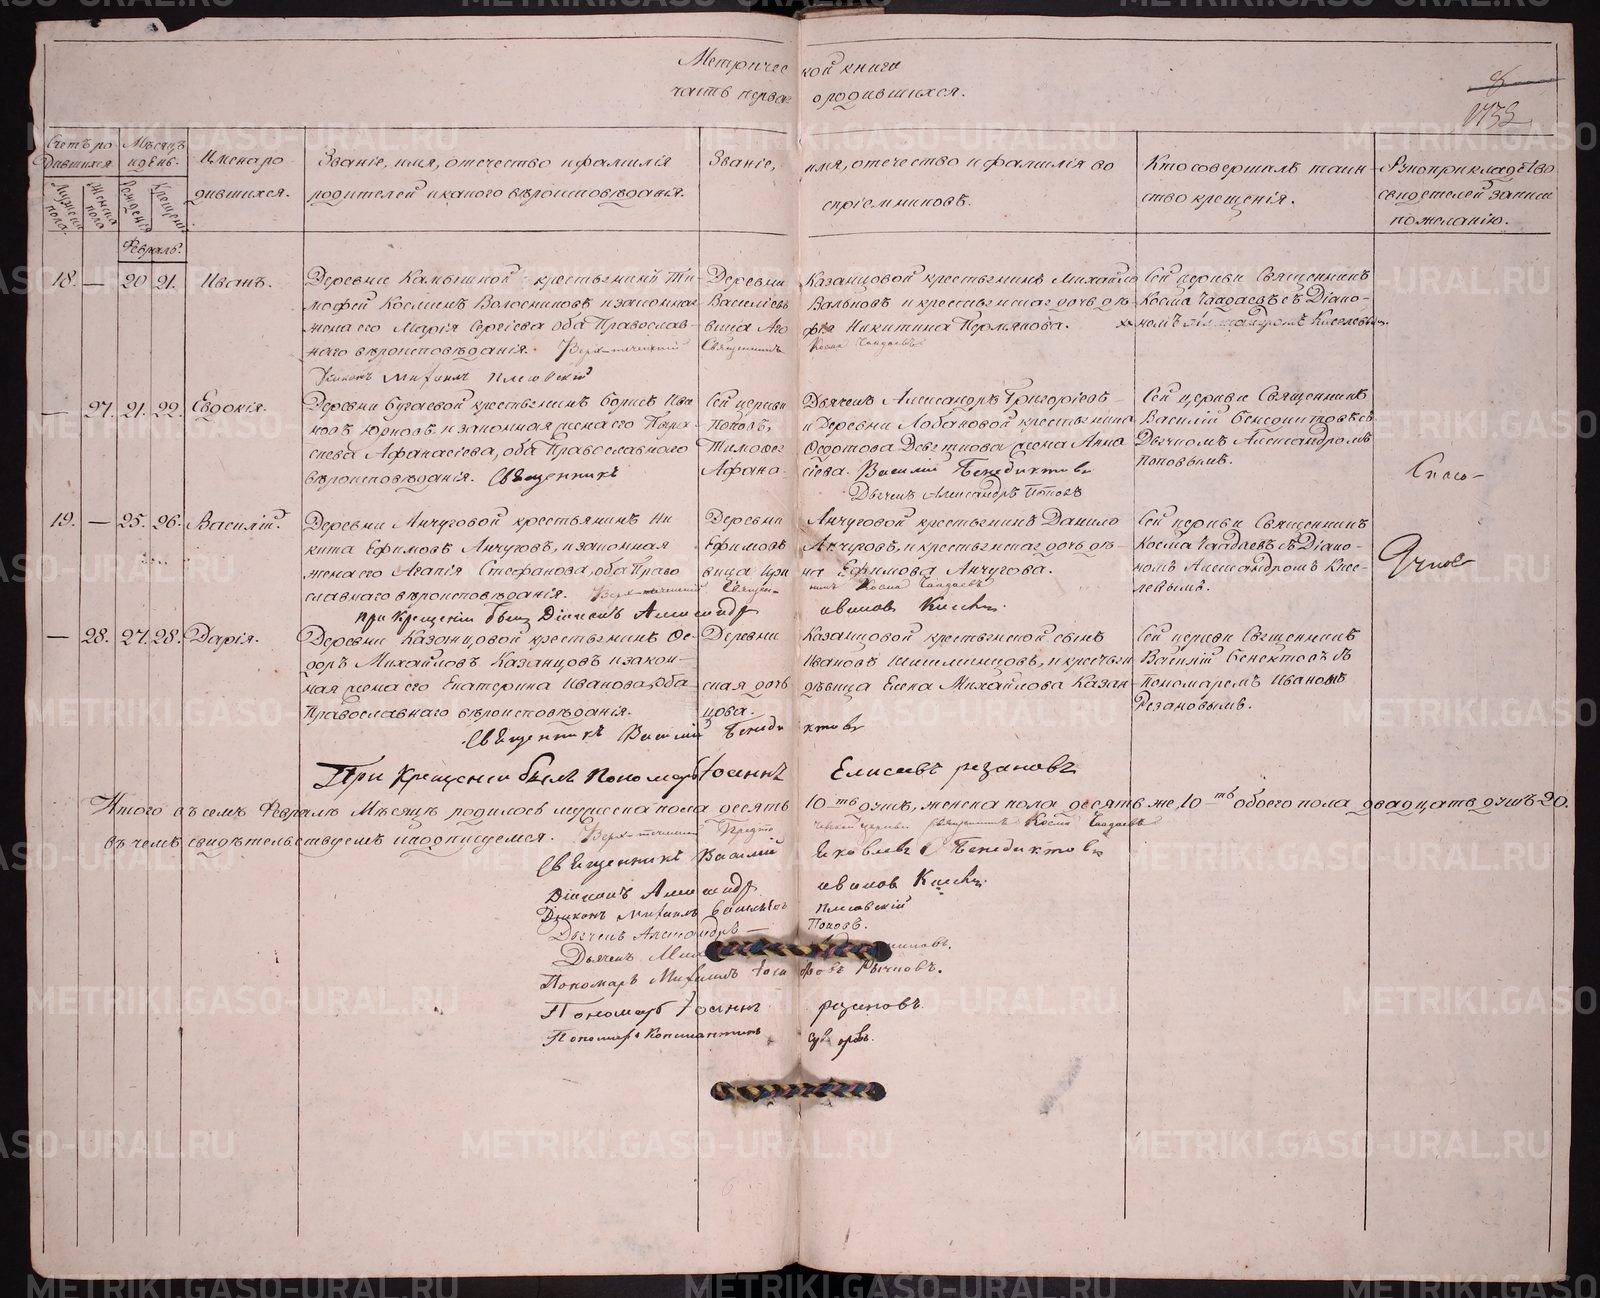 Метрической книги
часть первая о родившихся.
8
Счетъ родившихся
Мужеска пола.
Женска пола
Мѣсяцъ и день.
Рожденія
Крещенія
Имена родившихся.
Званіе, имя, отечество и фамилія
родителей и какого вѣроисповѣданія.
Званіе, имя, отечество и фамилія во
спріемниковъ.
Кто совершалъ таин
ство крещенія.
Рукоприкладство
свидетелей записи
по желанію.
Февраль.
18. — 20 21. Иванъ.
Деревни Камышной крестьянинъ Ти-
мофей Косминъ Волосниковъ и законная
жена его Марія Сергіева оба Православ-
наго вѣроисповѣданія. Верх-теченскій Священникъ
Діаконъ Михаилъ Плесовскій
Деревни Казанцовой крестьянинъ Михайло
Васильевъ и крестьянская дочь дѣ-
вица Никитина Пермякова.
Сей церкви Священникъ
Косма Чаадаевъ съ Діако-
номъ Александромъ Киселевым.
— 27. 21. 22. Евдокія.
Деревни Бугаевой крестьянинъ Борисъ Ива
новъ и законная жена его Пара-
скева Афанасіева, оба Православнаго
вѣроисповѣданія. Священникъ
Сей церкви Дьячекъ Александръ Григоріевъ
Поповъ, и Деревни Лобановой крестьянина
жена Анна
Василій Бенедиктовъ
Дьячекъ Александръ Поповъ
Сей церкви Священникъ
Василій Бенедиктовъ съ
Дьячкомъ Александромъ
Поповымъ.
Спасо-
19. — 25. 26. Василій.
Деревни Анчуговой крестьянинъ Ни
кита Ефимовъ Анчуговъ, и законная
жена его Агапія Стефанова, оба Право
славнаго вѣроисповѣданія. Верх-теченскій Священ-
никъ Косма Чаадаевъ
при крещении былъ Діаконъ Александр Иванов Киселев.
Деревни Анчуговой крестьянинъ Данило
Ефимовъ Анчуговъ, и крестьянская дочь дѣ-
вица Ири на Ефимова Анчугова.
Сей церкви Священникъ
Косма Чаадаевъ съ Діако-
номъ Александромъ Кисе-
левымъ.
— 28. 27. 28. Дарія.
Деревни Казанцовой крестьянинъ Фе-
доръ Михайловъ Казанцовъ и закон-
ная жена его Екатерина Иванова, оба
Православнаго вѣроисповѣданія.
Священникъ Василій Бенедиктовъ
Деревни Казанцовой крестьянской сынъ
Ивановъ Шишминцовъ, и крестьян
ская дочь дѣвица Елена Михайлова Казан-
цова.
Сей церкви Священникъ
Василій Бенектовъ съ
Пономаремъ Иваномъ
Резановымъ.
При крещении былъ пономарь Іоаннъ Елисеевъ резановъ
Итого въ семъ Февралѣ Мѣсяцѣ родилось мужеска пола десять 10-ть душъ, женска пола десять же, 10-ть обоего пола двадцать душъ 20.
въ чемъ свидѣтельствуемъ и подписуемся. Верх-теченской Предтеченской церкви священникъ Косма Чаадаевъ
Священникъ Василій Яковлевъ Бенедиктовъ
Діаконъ Александр Иванов Киселев.
Діаконъ Михаилъ Васильевъ Плесовскій
Дьячекъ Александръ Поповъ.
Дьячекъ
Пономарь Михаилъ Рычковъ.
Пономарь Іоаннъ резановъ.
Пономарь Константинъ Суворовъ.
METRIKI.GASO-URAL.RU